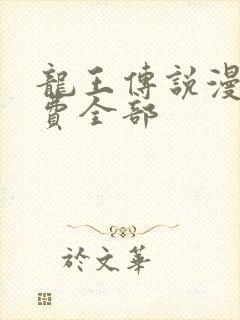 龍王傳說漫
費全部
於文華